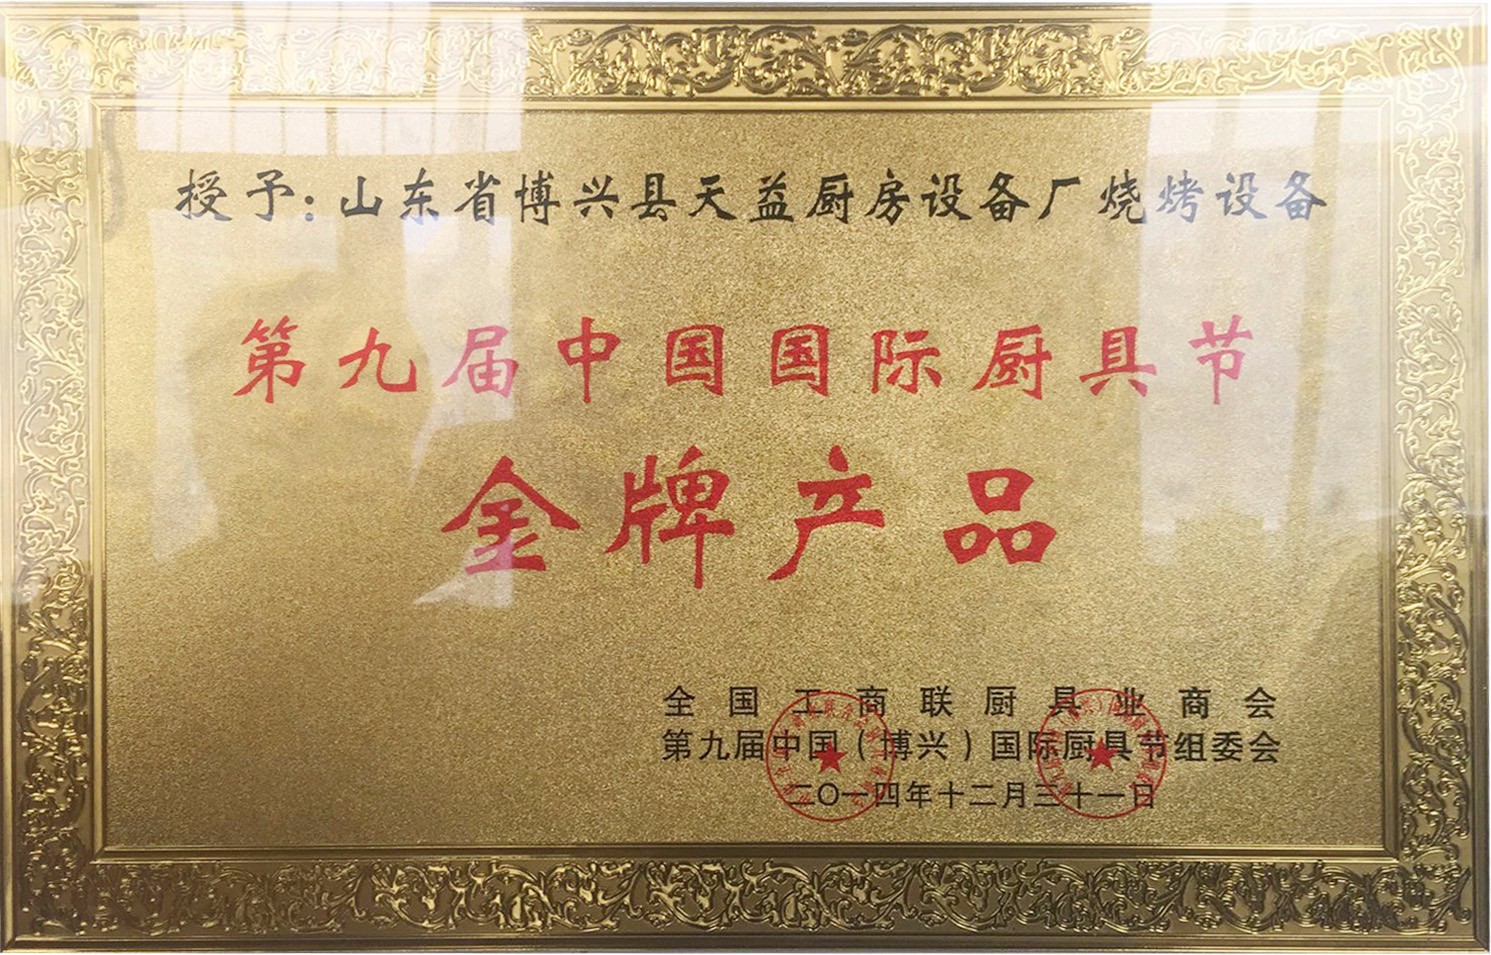 授予:山东省博兴县天益厨房设备厂烧烤设备
第九届中国国际厨具节
金牌产品
全国工商联厨具业商会
第九届中国(博兴)国际厨具节组委会
二〇一四年十二月三十一日